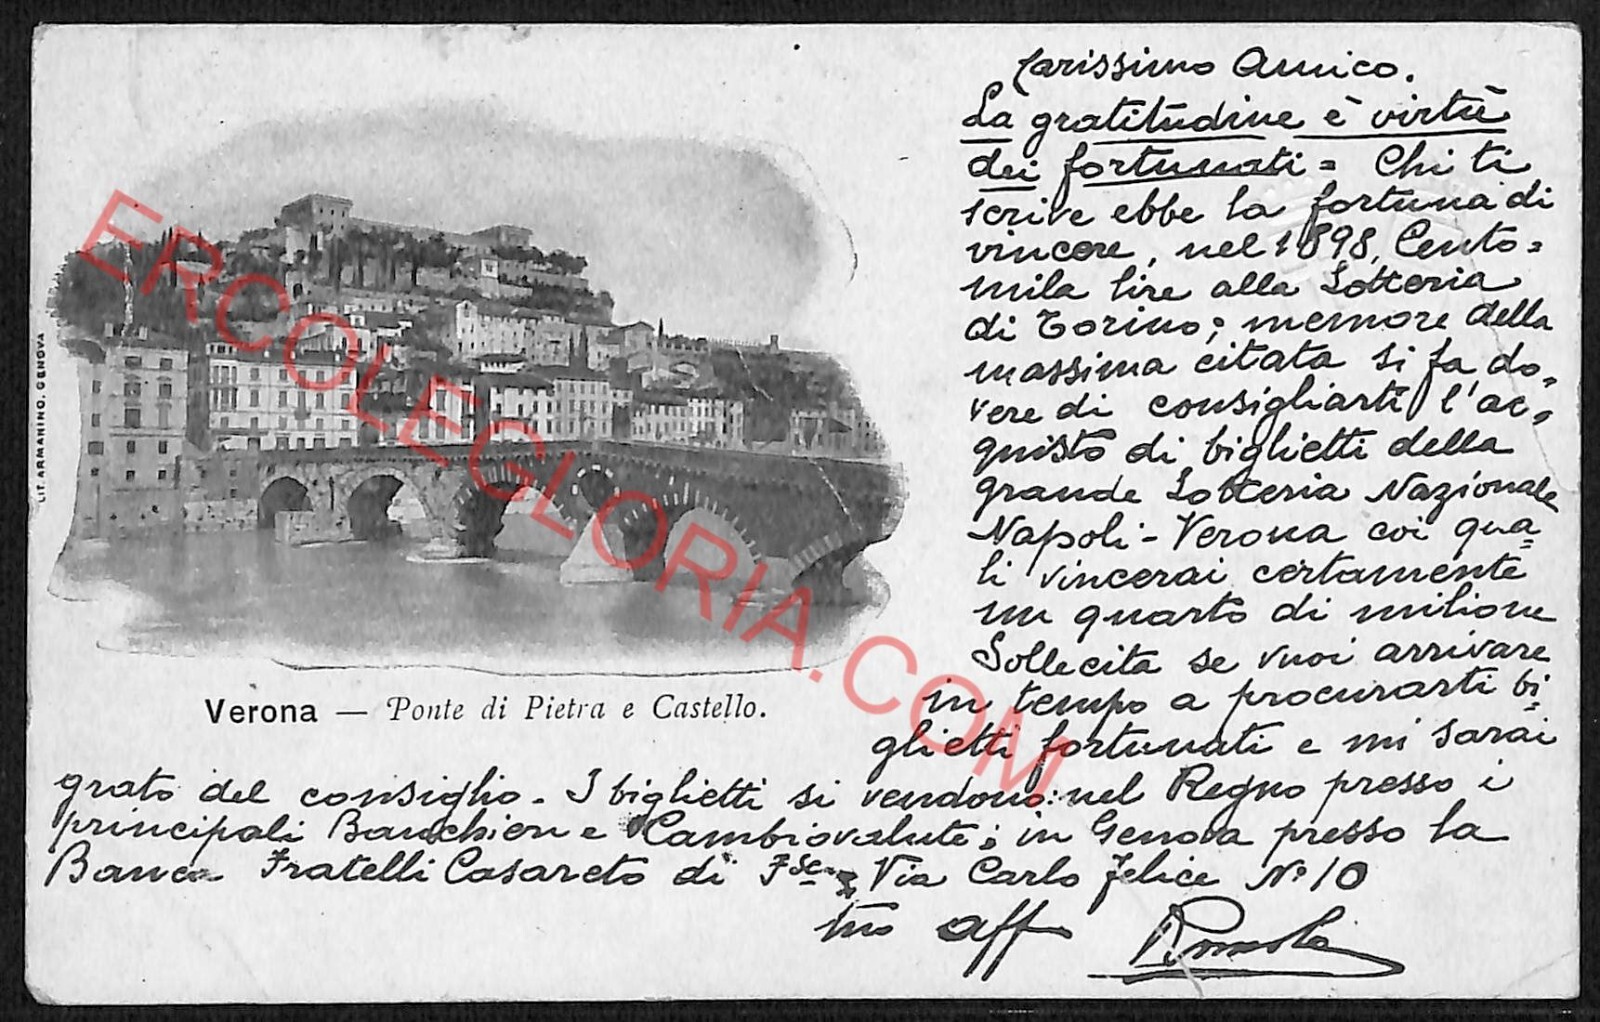 Carissimo Amico.
La gratitudine è virtù
dei fortunati = Chi ti
scrive ebbe la fortuna di
vincere, nel 1898, Cento=
mila lire alla Lotteria
di Torino; memore della
massima citata si fa do=
vere di consigliarti l'ac=
quisto di biglietti della
grande Lotteria Nazionale
Napoli-Verona coi qua=
li vincerai certamente
un quarto di milione
Sollecita se vuoi arrivare
in tempo a procurarti bi=
glietti fortunati e mi sarai
grato del consiglio. I biglietti si vendono: nel Regno presso i
principali Banchieri e Cambiovalute; in Genova presso la
Banca Fratelli Casareto di Fsco, Via Carlo Felice No 10
tuo aff
Verona — Ponte di Pietra e Castello.
LIT. ARMANINO. GENOVA
ERCOLEGLORIA.COM